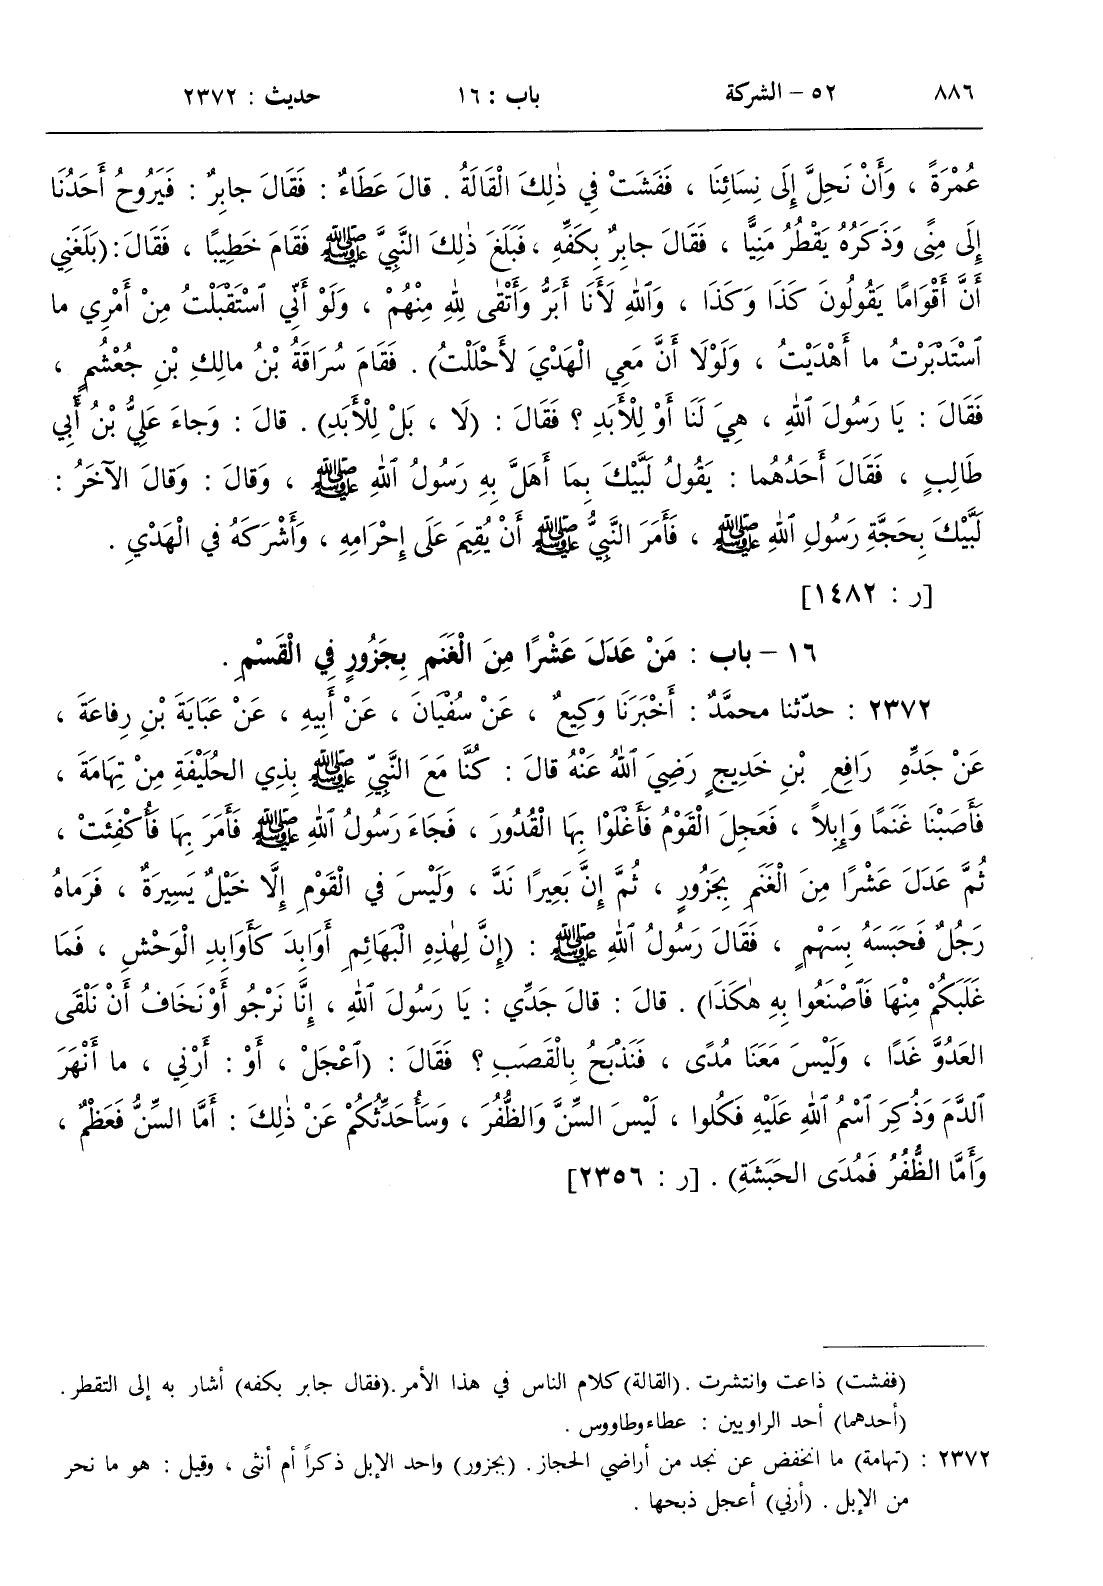 ٨٨٦ ٥٢ - الشركة باب : ١٦ حديث : ٢٣٧٢
عُمْرَةً ، وَأَنْ نَحِلَّ إِلَى نِسَائِنَا ، فَفَشَتْ فِي ذٰلِكَ الْقَالَةُ . قالَ عَطَاءٌ : فَقَالَ جابِرٌ : فَيَرُوحُ أَحَدُنَا
إِلَى مِنًى وَذَكَرُهُ يَقْطُرُ مَنِيًّا ، فَقَالَ جابِرٌ بِكَفِّهِ ، فَبَلَغَ ذٰلِكَ النَّبِيَّ ﷺ فَقَامَ خَطِيبًا ، فَقَالَ : (بَلَغَنِي
أَنَّ أَقْوَامًا يَقُولُونَ كَذَا وَكَذَا ، وَٱللهِ لَأَنَا أَبَرُّ وَأَتْقٰى لِلهِ مِنْهُمْ ، وَلَوْ أَنِّي ٱسْتَقْبَلْتُ مِنْ أَمْرِي ما
ٱسْتَدْبَرْتُ ما أَهْدَيْتُ ، وَلَوْلَا أَنَّ مَعِي الْهَدْيَ لَأَحْلَلْتُ) . فَقَامَ سُرَاقَةُ بْنُ مالِكِ بْنِ جُعْشُمٍ ،
فَقَالَ : يَا رَسُولَ ٱللهِ ، هِيَ لَنَا أَوْ لِلْأَبَدِ ؟ فَقَالَ : (لَا ، بَلْ لِلْأَبَدِ) . قالَ : وَجاءَ عَلِيُّ بْنُ أَبِي
طَالِبٍ ، فَقَالَ أَحَدُهُما : يَقُولُ لَبَّيْكَ بِمَا أَهَلَّ بِهِ رَسُولُ ٱللهِ ﷺ ، وَقالَ : وَقالَ الآخَرُ :
لَبَّيْكَ بِحَجَّةِ رَسُولِ ٱللهِ ﷺ ، فَأَمَرَ النَّبِيُّ ﷺ أَنْ يُقِيمَ عَلَى إِحْرَامِهِ ، وَأَشْرَكَهُ فِي الْهَدْيِ .
[ر : ١٤٨٢]
١٦ - باب : مَنْ عَدَلَ عَشْرًا مِنَ الْغَنَمِ بِجَزُورٍ فِي الْقَسْمِ .
٢٣٧٢ : حدّثنا محمَّدٌ : أَخْبَرَنَا وَكِيعٌ ، عَنْ سُفْيَانَ ، عَنْ أَبِيهِ ، عَنْ عَبَايَةَ بْنِ رِفاعَةَ ،
عَنْ جَدِّهِ رَافِعِ بْنِ خَدِيجٍ رَضِيَ ٱللهُ عَنْهُ قالَ : كُنَّا مَعَ النَّبِيِّ ﷺ بِذِي الحُلَيْفَةِ مِنْ تِهَامَةَ ،
فَأَصَبْنَا غَنَمًا وَإِبِلاً ، فَعَجِلَ الْقَوْمُ فَأَغْلَوْا بِهَا الْقُدُورَ ، فَجَاءَ رَسُولُ ٱللهِ ﷺ فَأَمَرَ بِهَا فَأُكْفِئَتْ ،
ثُمَّ عَدَلَ عَشْرًا مِنَ الْغَنَمِ بِجَزُورٍ ، ثُمَّ إِنَّ بَعِيرًا نَدَّ ، وَلَيْسَ فِي الْقَوْمِ إِلَّا خَيْلٌ يَسِيرَةٌ ، فَرَماهُ
رَجُلٌ فَحَبَسَهُ بِسَهْمٍ ، فَقَالَ رَسُولُ ٱللهِ ﷺ : (إِنَّ لِهٰذِهِ الْبَهَائِمِ أَوَابِدَ كَأَوَابِدِ الْوَحْشِ ، فَمَا
غَلَبَكُمْ مِنْهَا فَٱصْنَعُوا بِهِ هٰكَذَا) . قالَ : قالَ جَدِّي : يَا رَسُولَ ٱللهِ ، إِنَّا نَرْجُو أَوْ نَخَافُ أَنْ نَلْقَى
العَدُوَّ غَدًا ، وَلَيْسَ مَعَنَا مُدًى ، فَنَذْبَحُ بِالْقَصَبِ ؟ فَقَالَ : (ٱعْجَلْ ، أَوْ : أَرْنِي ، ما أَنْهَرَ
ٱلدَّمَ وَذُكِرَ ٱسْمُ ٱللهِ عَلَيْهِ فَكُلُوا ، لَيْسَ السِّنَّ وَالظُّفُرَ ، وَسَأُحَدِّثُكُمْ عَنْ ذٰلِكَ : أَمَّا السِّنُّ فَعَظْمٌ ،
وَأَمَّا الظُّفُرُ فَمُدَى الحَبَشَةِ) . [ر : ٢٣٥٦]
(ففشت) ذاعت وانتشرت . (القالة) كلام الناس في هذا الأمر . (فقال جابر بكفه) أشار به إلى التقطر .
(أحدهما) أحد الراويين : عطاء وطاووس .
٢٣٧٢ : (تهامة) ما انخفض عن نجد من أراضي الحجاز . (بجزور) واحد الإبل ذكراً أم أنثى ، وقيل : هو ما نحر
من الإبل . (أرني) أعجل ذبحها .